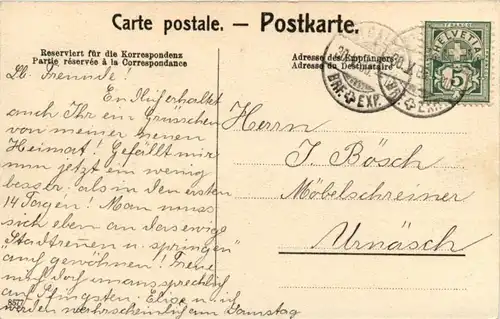 Carte postale. — Postkarte.
Reserviert für die Korrespondenz
Partie réservée à la Correspondance
Adresse des Empfängers
Adresse du Destinataire
HELVETIA
5
BRF. EXP.
Lb. Freunde!
En erhaltet
auch Ihr ein Grüsschen
von meiner neuen
Heimat! Gefällt mir
nun jetzt ein wenig
besser als in den ersten
14 Tagen! Man muss
sich eben an das ewige
"Stadtrennen u. springen"
auf gewöhnen! Freue
mich doch
auf Pfingsten u. ich
werden wahrscheinlich am Samstag
Herrn
J. Bösch
Möbelschreiner
Urnäsch
8577